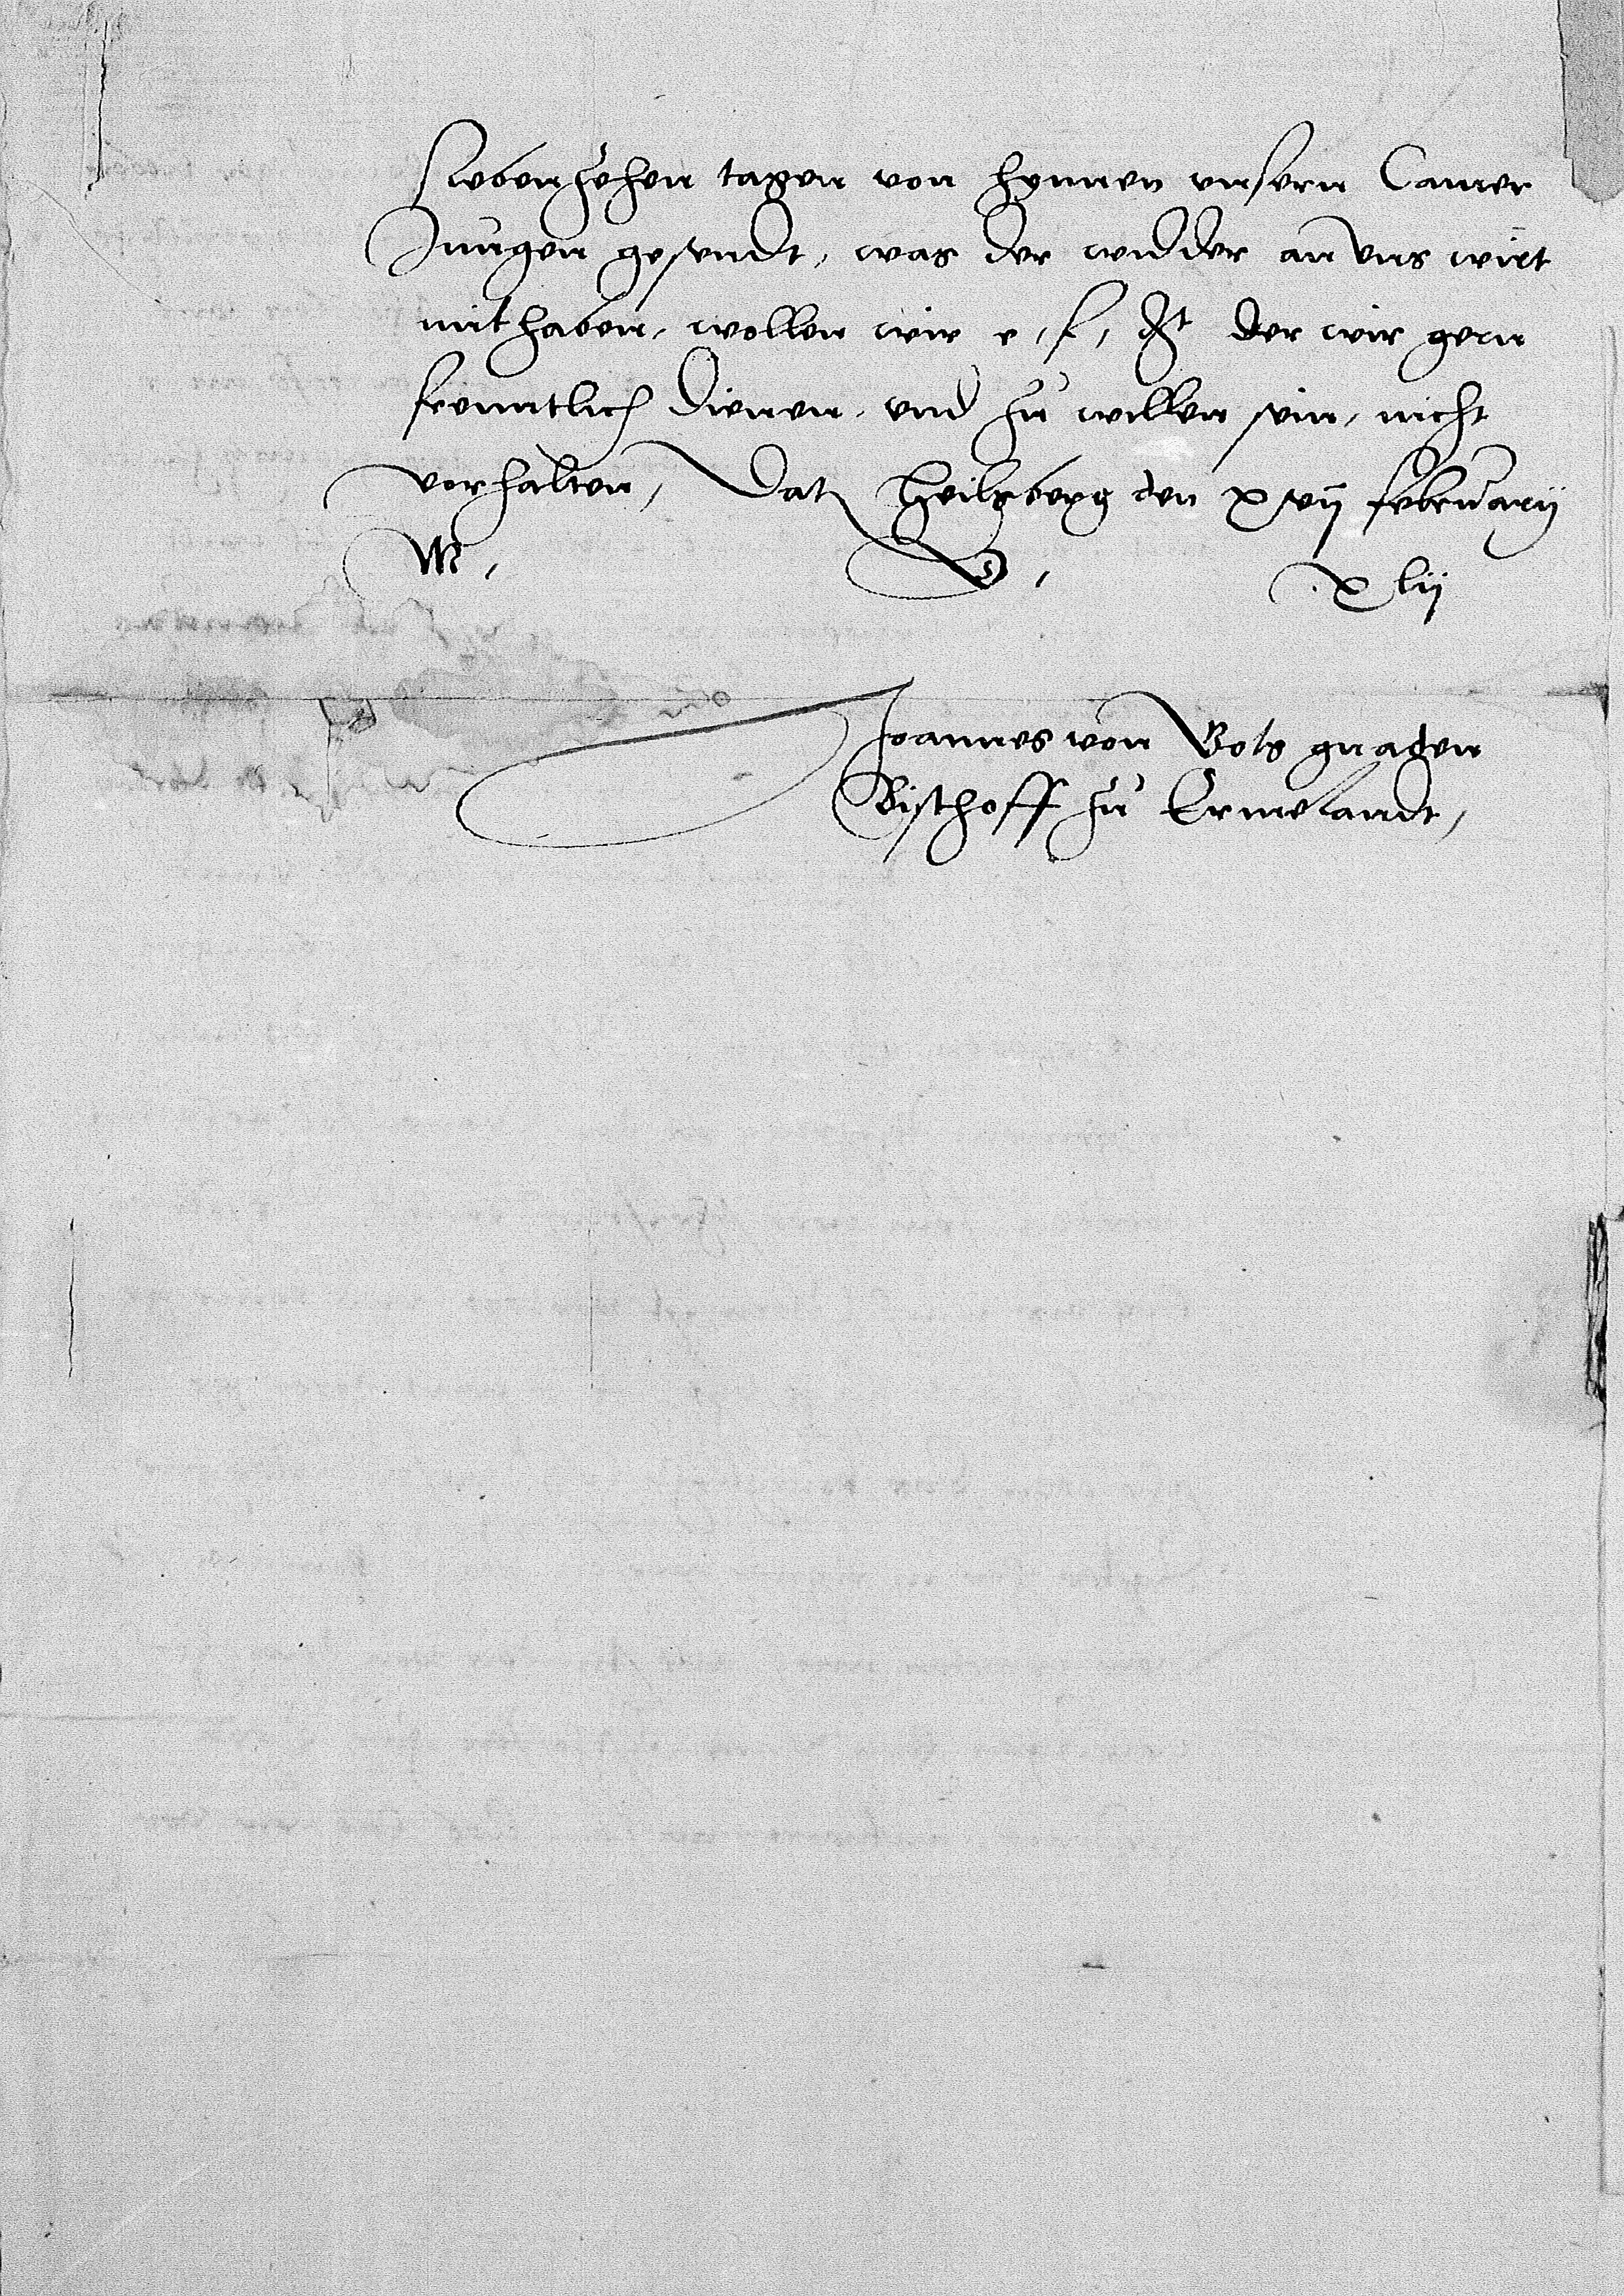 sieben zehen tagen von hynnen unsern Camer
Jungen gesendt, was der widder an uns wirt
mit haben, wollen wir e, f, dt der wir gern
freuntlich dienen, und zu willen sein, nicht
vorhalten, Dat Heilsberg den xvij february
M, D, xlij
Joannes von Gots gnaden
Bischoff zu Ermelandt,